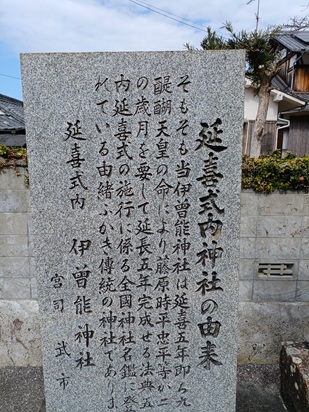 延喜式内神社の由来
そもそも当伊曽能神社は延喜五年即ち九
醍醐天皇の命により藤原時平忠平等が二
の歳月を要して延長五年完成せる法典五
内延喜式の施行に係る全国神社名鑑に登
れている由緒ふかき傳統の神社でありま
延喜式内 伊曽能神社
宮司 武市